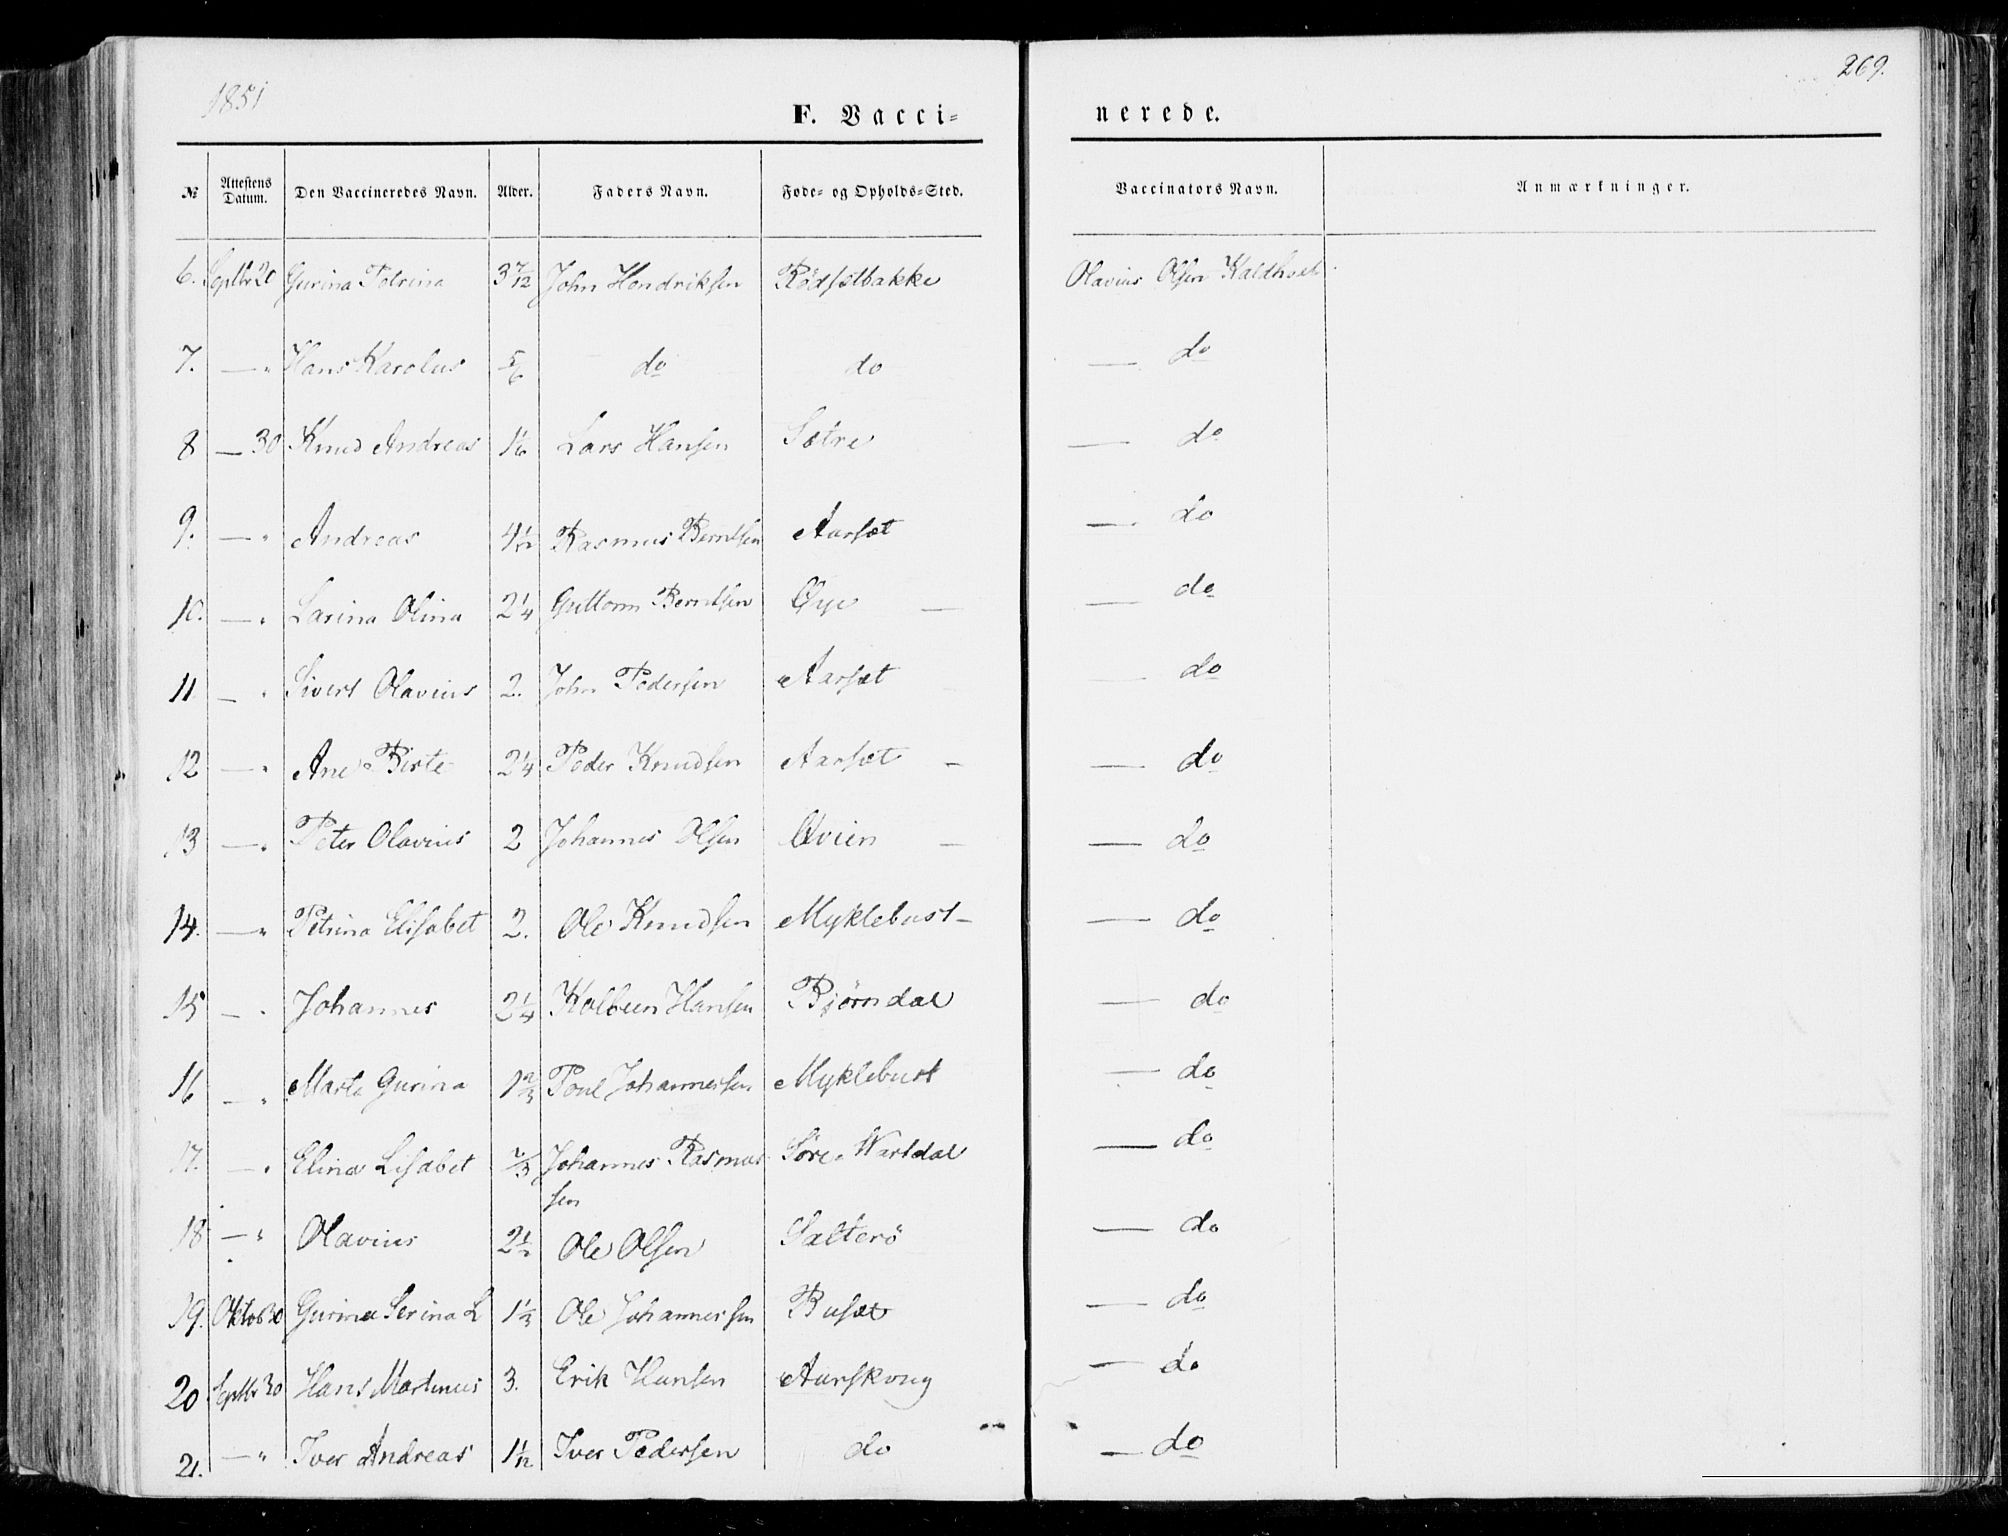 1851
269.
F. Vacci=
nerede.
№ Attestens Datum. Den Vaccineredes Navn. Alder. Faders Navn. Føde= og Opholds=Sted. Vaccinators Navn. Anmærkninger.
6. Septbr 20 Gurina Petrina 3 7/12 John Hendriksen Rödsetbakke Olavius Olsen Kaldhol
7. — " Hans Karolus 5/6 do do — do
8 — 30 Knud Andreas 1 1/6 Lars Hansen Sætre — do
9. — " Andreas 4 1/12 Rasmus Berntsen Aarset — do
10. — " Larina Olina 2 1/4 Guttorm Berntsen Øye — — do
11 — " Sivert Olavius 2. John Pedersen Aarset — do
12 — " Ane Birte 2 1/4 Peder Knudsen Aarset — — do
13 — " Peter Olavius 2 Johannes Olsen Qvien — — do
14. — " Petrina Elisabet 2. Ole Knudsen Myklebust — — do
15 — " Johannes 2 1/4 Kolbeen Hansen Bjørndal — do
16 — " Marte Gurina 1 2/3 Poul Johannessen Myklebust — do
17. — " Elina Lisabet 2/3 Johannes Rasmus Søre Vartdal — do
sen
18 — " Olavius 2 1/2 Ole Olsen Salterö — do
19. Oktob 30 Gurina Serina L 1 1/3 Ole Johannessen Buset — do
20 Septbr 30 Hans Martinus 3. Erik Hansen Aurskoug — do
21. — " Iver Andreas 1 1/12 Iver Pedersen do — do